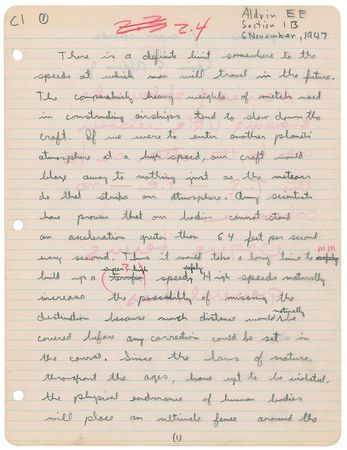 C1 ① 2.3 2.4 Aldrin EE
Section 1B
6 November, 1947
There is a definite limit somewhere to the
speeds at which men will travel in the future.
The comparatively heavy weights of metals used
in constructing airships tend to slow down the
craft. If we were to enter another planets
atmosphere at a high speed, our craft would
blaze away to nothing just as the meteors
do that strike our atmosphere. Army scientists
have proven that our bodies cannot stand
an acceleration greater than 64 feet per second
every second. Thus it would take a long time to safely MM
build up a terrific super? high speed safely. High speeds naturally
increase the possibility of missing the
destination because much distance would be naturally
covered before any correction could be set in
the course. Since the laws of nature,
throughout the ages, have yet to be violated,
the physical endurance of human bodies
will place an ultimate fence around the
(1)